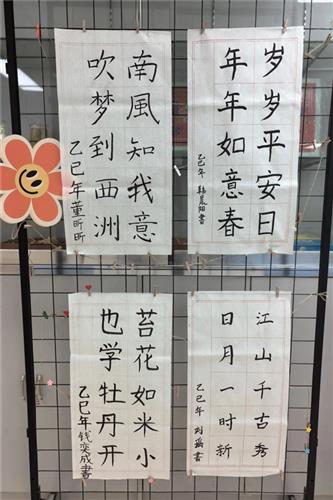 南風知我意
吹梦到西洲
乙巳年董昕昕
岁岁平安日
年年如意春
乙巳年 韩晨阳書
苔花如米小
也学牡丹开
乙巳年钱奕成書
江山千古秀
日月一时新
乙巳年 刘瑀書